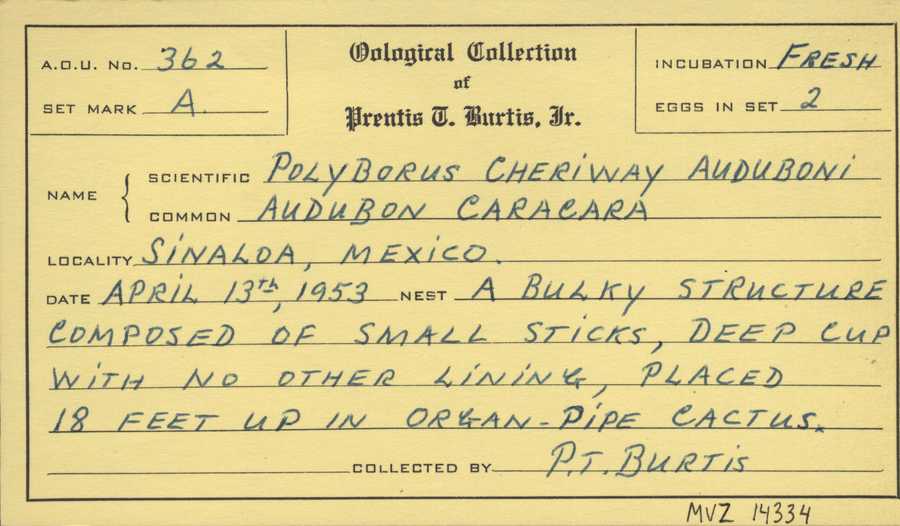 A.O.U. No. 362
SET MARK A.
Oological Collection
of
Prentis T. Burtis, Jr.
INCUBATION FRESH
EGGS IN SET 2
NAME { SCIENTIFIC POLYBORUS CHERIWAY AUDUBONI
COMMON AUDUBON CARACARA
LOCALITY SINALOA, MEXICO.
DATE APRIL 13th, 1953 NEST A BULKY STRUCTURE
COMPOSED OF SMALL STICKS, DEEP CUP
WITH NO OTHER LINING, PLACED
18 FEET UP IN ORGAN-PIPE CACTUS.
COLLECTED BY P.T. BURTIS
MVZ 14334